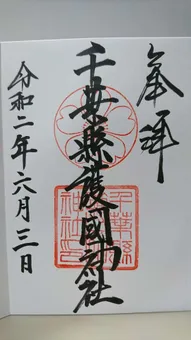 奉拝
千葉縣護國神社
千葉縣
神社印
令和二年六月三日